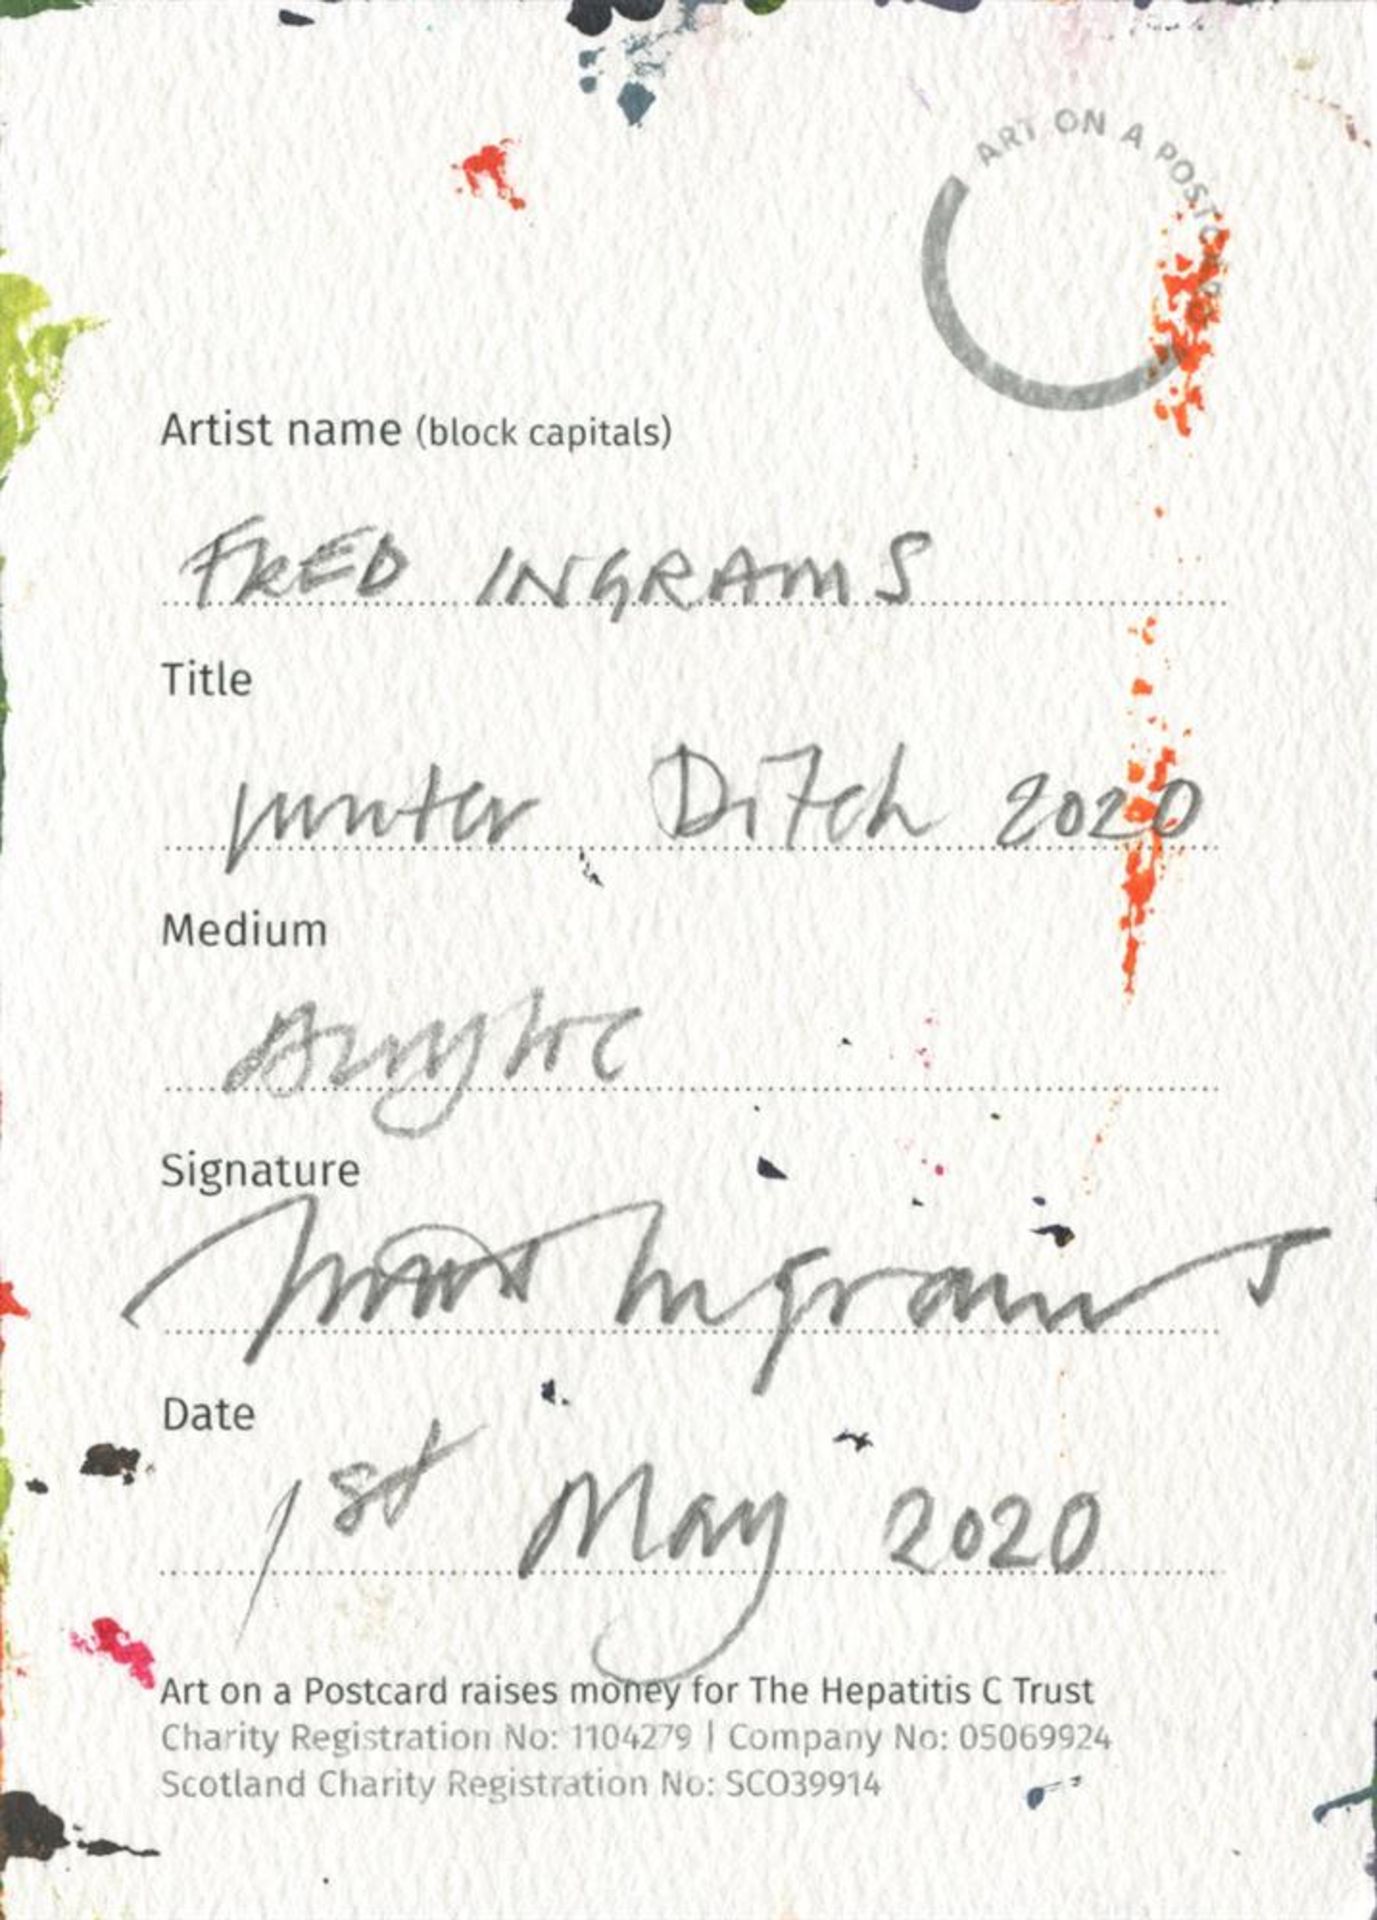 ART ON A POSTCARD
Artist name (block capitals)
FRED INGRAMS
Title
Ditch 2020
Medium
Acrylic
Signature
Ingrams
Date
1st May 2020
Art on a Postcard raises money for The Hepatitis C Trust
Charity Registration No: 1104279 | Company No: 05069924
Scotland Charity Registration No: SCO39914